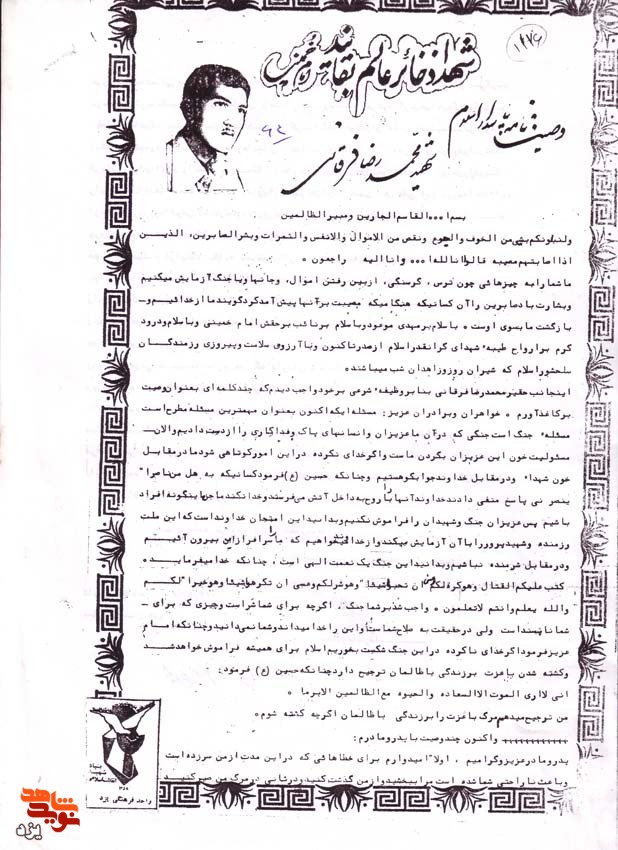 ۱۲۷۶
شهدا ذخائر عالم بقایند
وصیت نامه پاسدار اسلام
شهید محمد رضا فرقانی
بسم ا... القاسم الجبارین ومبیر الظالمین
ولنبلونکم بشی من الخوف والجوع ونقص من الاموال والانفس والثمرات وبشر الصابرین، الذیـــن
اذا اصابتهم مصیبه قالوا انا لله ا... وانا الیه راجعون .
ما شما را به چیزهائی چون ترس، گرسنگی، ازبین رفتن اموال، وجانها وبا جنگ آزمایش میکنیم
وبشارت باد صابرین را آن کسانیکه هنگامیکه مصیبت برآنها پیش آمد کرد گویند ما از خدائیم و
بازگشت ما بسوی اوست . باسلام بر مهدی موعود وباسلام بر نائب برحقش امام خمینی وباسلام ودرود
گرم بر ارواح طیبه شهدای گرانقدر اسلام از صدر تاکنون وبا آرزوی سلامت وپیروزی رزمندگـــان
سلحشور اسلام که شیران روز وزاهدان شب میباشند .
اینجانب حقیر محمدرضا فرقانی بنا بر وظیفه شرعی برخود واجب دیدم که چند کلمه ای بعنوان وصیت
برکاغذ آورم . خواهران وبرادران عزیز: مسئله ایکه اکنون بعنوان مهمترین مسئله مطرح است
مسئله جنگ است جنگی که درآن ما عزیزان وانسانهای پاک وفداکاری را ازدست دادیم والان
مسئولیت خون این عزیزان بگردن ماست واگر خدای نکرده در این امور کوتاهی شود ما در مقابل
خون شهدا ودر مقابل خداوند جوابگو هستیم وچنانکه حسین (ع) فرمود کسانیکه به هل من ناصرا"
ینصرنی پاسخ منفی دادند خداوند آنها را با روح به داخل آتش می فرستد وخدا نکند ما جزء اینگونه افراد
باشیم پس عزیزان جنگ وشهیدان را فراموش نکنیم وبدانید این امتحان خداوند است که این ملت
رزمنده وشهیدپرور را با آن آزمایش میکند واز خدا میخواهیم که ما را سرافراز از این بیرون آئیـم
ودر مقابل شرمنده نباشیم وبدانید این جنگ یک نعمت الهی است ، چنانکه خدا میفرمایـد
کتب علیکم القتال وهو کره لکم وعسی ان تحبوا شیئا" وهو شر لکم وعسی ان تکرهوا شیئا وهو خیرا" لکـم
والله یعلم وانتم لاتعلمون . واجب شد بر شما جنگ ، اگرچه برای شما شر است وچیزی که برای
شما ناپسند است ولی در حقیقت به صلاح شماست واین را خدا میداند وشما نمی دانید وچنانکه امـام
عزیز فرمود اگر خدای ناکرده در این جنگ شکست بخوریم اسلام برای همیشه فراموش خواهد شـد
وکشته شدن با عزت بر زندگی با ظالمان ترجیح دارد چنانکه حسین (ع) فرمود:
انی لا اری الموت الا السعاده والحیوه مع الظالمین الابرما .
من ترجیح میدهم مرگ با عزت را بر زندگی با ظالمان اگرچه کشته شوم .
واکنون چند وصیت با پدر ومادرم :
پدر ومادر عزیز وگرامیم ، اولا" امیدوارم برای خطاهائی که در این مدت از من سرزده است
وباعث ناراحتی شما شده است مرا ببخشید واز من گذشت کنید ودرثانی در مرگ من صبر کنیـد
بنیاد شهید
انقلاب اسلامی
واحد فرهنگی یزد
نوید شاهد
یزد